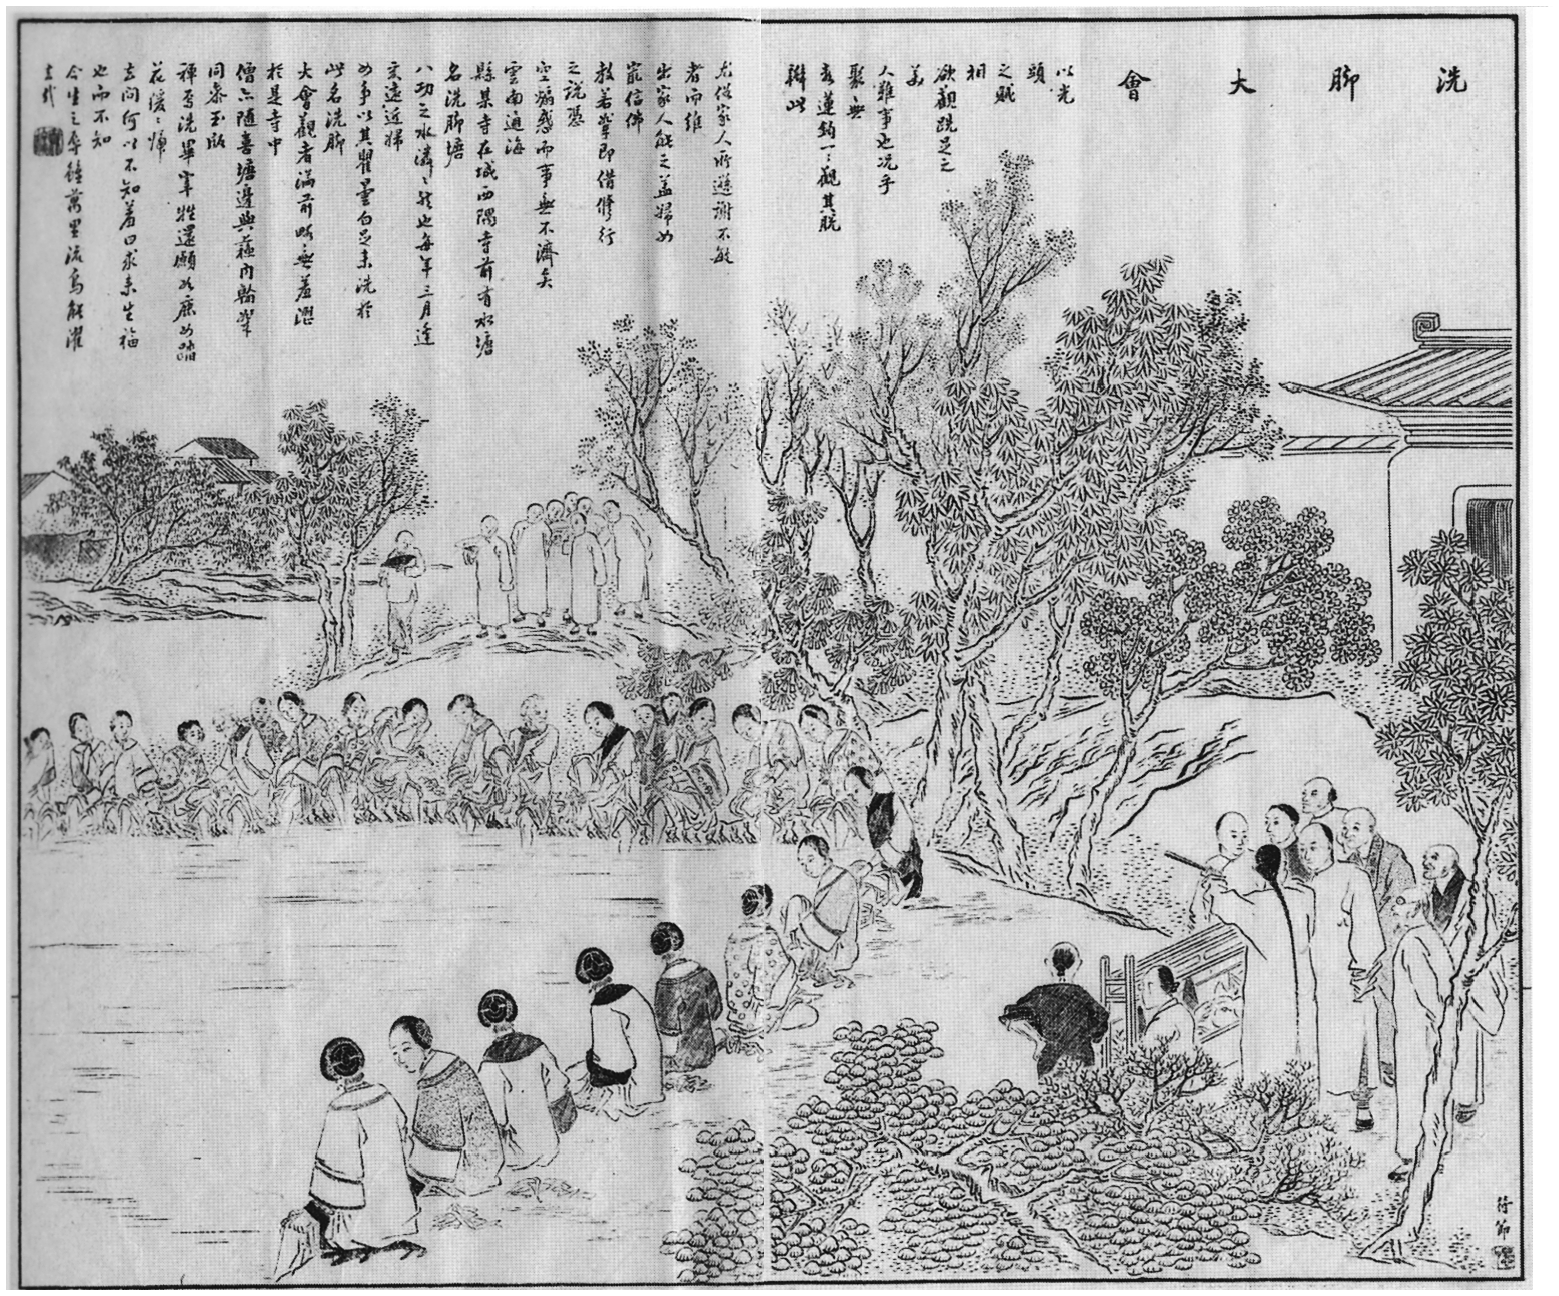 洗脚大會
以光
頭
之賊
相
欲觀跣足之
美
人難事也况乎
聚無
蓮鈎一一觀其脱
辦此
家人所遜謝不能
者而維
出家人能之蓋婦女
寵信佛
教若輩即借修行
之說憑
空煽惑而事無不濟矣
雲南通海
縣某寺在城西隅寺前有水塘
名洗脚塘
八功之水潾潾然也每年三月逢
亥遠近婦
女事以其瞿曇白足来洗於
此名洗脚
大會觀者滿前略無羞澀
於是寺中
僧亦隨喜塘邊與內輩
同參玉版
禪焉洗畢宰牲還願女踏
花緩緩歸
去問何以不知羞曰求来生福
也而不知
今生之辱雖萬里流烏能濯
去哉
符節